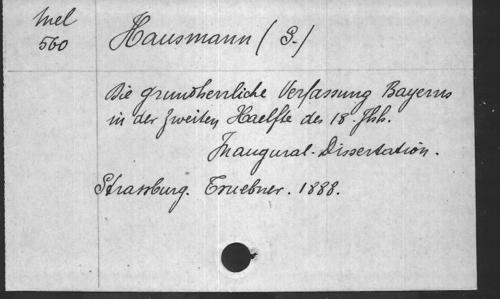 Mel
560
Hausmann (S.)
Die grundherrliche Verfassung Bayerns
in der zweiten Haelfte des 18. Jhh.
Inaugural-Dissertation.
Strassburg. Truebner. 1888.